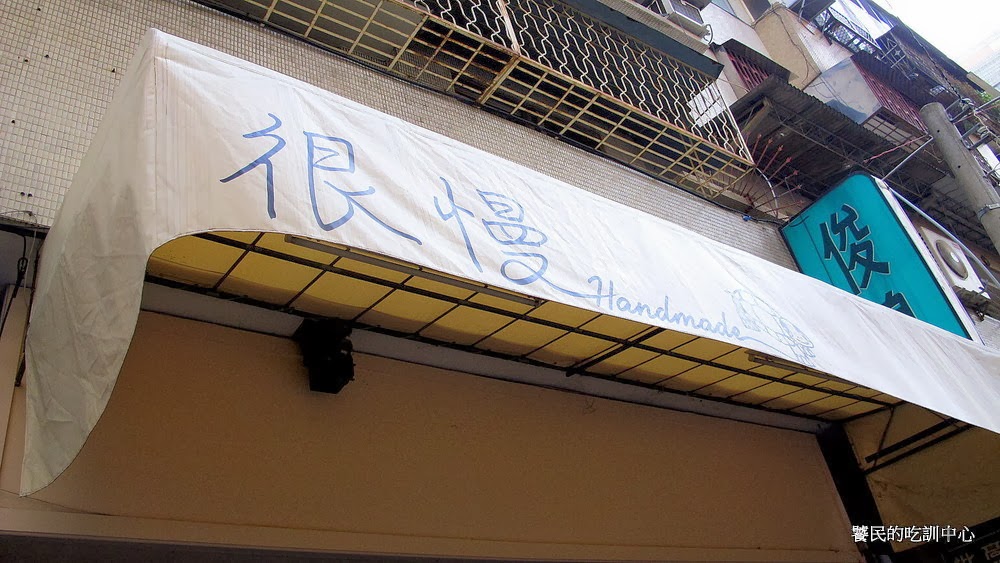 很慢 Handmade
俊
饕民的吃訓中心